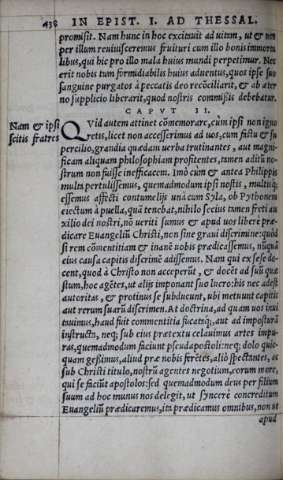 438 IN EPIST. I. AD THESSAL.
promisit. Nam hunc in hoc exciuit ad uitam, ut & nos
per illum reuiuisceremus fruituri cum illo bonis immorta
libus, qui hic pro illo mala huius mundi perpetimur. Nec
erit nobis tum formidabilis huius aduentus, quos ipse suo
sanguine purgatos à peccatis deo recōciliarit, & ab æter
no supplicio liberarit, quod nostris commißis debebatur.
CAPVT II.
Nam & ipsi
scitis fratres
QVid autem attinet cōmemorare, cùm ipsi non igno
retis, licet non accesserimus ad uos, cum fastu & su
percilio, grandia quædam uerba trutinantes, aut magni
ficam aliquam philosophiam profitentes, tamen aditū no=
strum non fuisse inefficacem. Imò cùm & antea Philippis
multa pertulissemus, quemadmodum ipsi nostis, multisq;
essemus affecti contumelijs unà cum Syla, ob Pythonem
eiectum à puella, quā tenebat, nihilo secius tamen freti au
xilio dei nostri, nō ueriti sumus & apud uos liberè præ=
dicare Euangeliū Christi, non sine graui discrimine: quod
si rem cōmentitiam & inanē uobis prædicassemus, nūquā
eius causa capitis discrimē adissemus. Nam qui ex sese do=
cent, quod à Christo non acceperūt, & docēt ad suū quæ
stum, hoc agētes, ut alijs imponant suo lucro: his nec adest
autoritas, & protinus se subducunt, ubi metuunt capitis
aut rerum suarū discrimen. At doctrina, ad quam uos inui
tauimus, haud fuit commentitia fucatáq;, aut ad imposturā
instructa, neq; sub eius prætextu celauimus artes impu=
ras, quemadmodum faciunt pseudapostoli: neq; dolo quic=
quam geßimus, aliud præ nobis ferētes, aliò spectantes, ac
sub Christi titulo, nostrū agentes negotium, eorum more,
qui se faciūt apostolos: sed quemadmodum deus per filium
suum ad hoc munus nos delegit, ut syncerè concreditum
Euangeliū prædicaremus, ita prædicamus omnibus, non ut
apud